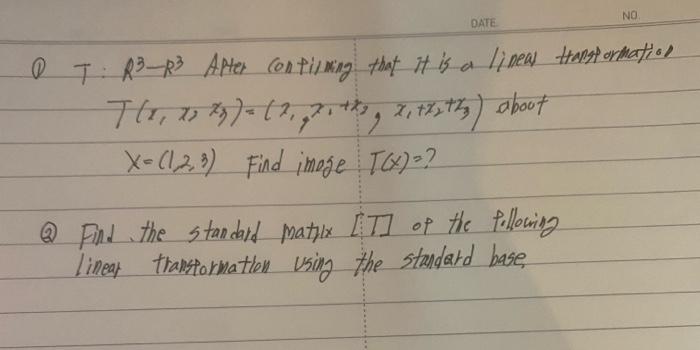 DATE. NO.
① T : R³—R³ After Confirming that it is a linear transformation
T(x₁, x₂ x₃) = (x₁, x₁+x₂, x₁+x₂+x₃) about
X=(1,2,3) Find image T(x)=?
② Find the standard matrix [T] of the following
linear transformation using the standard base.